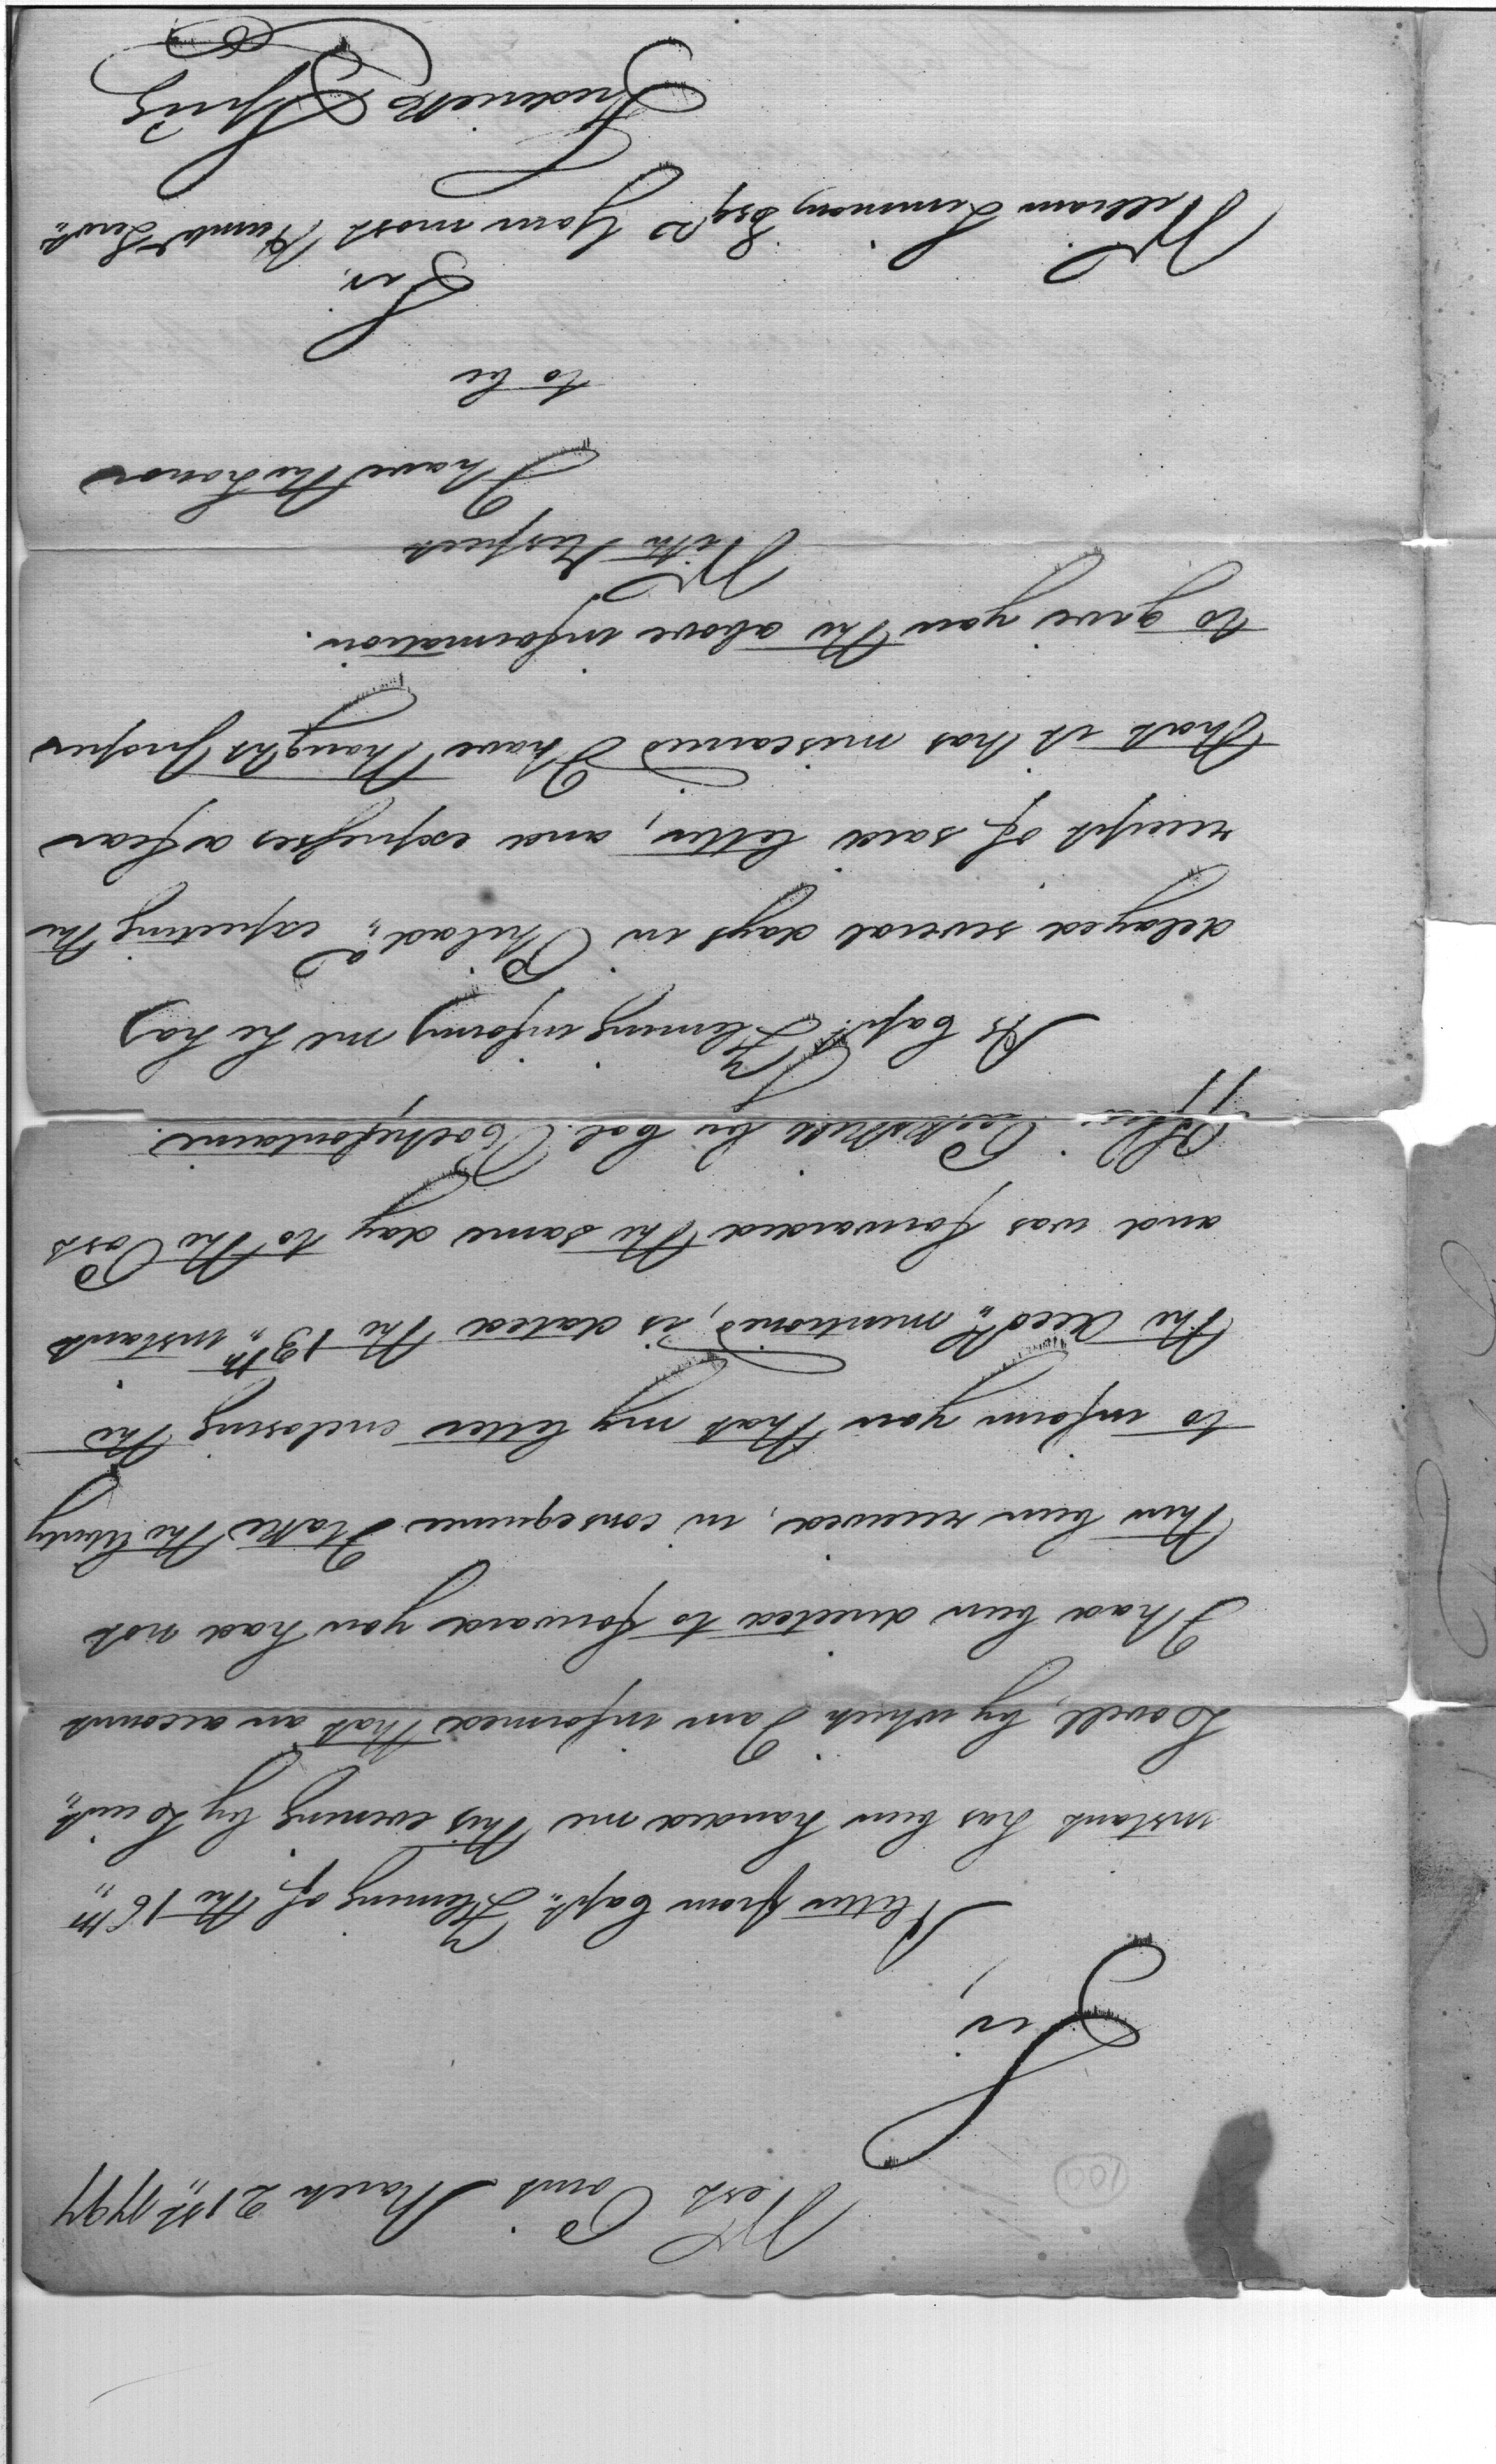 West Point March 21st,, 1797
(100)
Sir,
A letter from Capt,, Fleming of the 16th,,
instant has been handed me this evening by Lieut,,
Lovell, by which I am informed that an account
I had been directed to forward you had not
then been received, in consequence I take the liberty
to inform you that my letter enclosing the
the Acct,, mentioned, is dated the 13th,, instant
and was forwarded the same day to the Post
Office Peekskill by Col. Rochefontaine.
As Capt. Fleming informs me he has
delayed several days in Philada,, expecting the
receipt of said letter, and expresses a fear
that it has miscarried I have thought proper
to give you the above information.
With Respect
I have the honor
to be
Sir,
William Simmons Esqr. Your most Humbe Servt,,
Frederick Frye